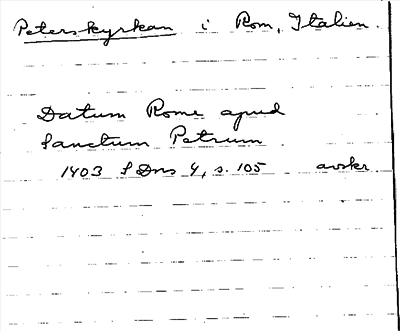 Peterskyrkan i Rom, Italien.
Datum Rome apud
Sanctum Petrum
1403 SDns 4, s. 105 avskr